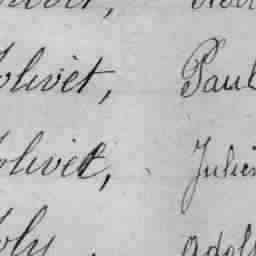 olivet, Paul
olivet, Julien
oly, Adol